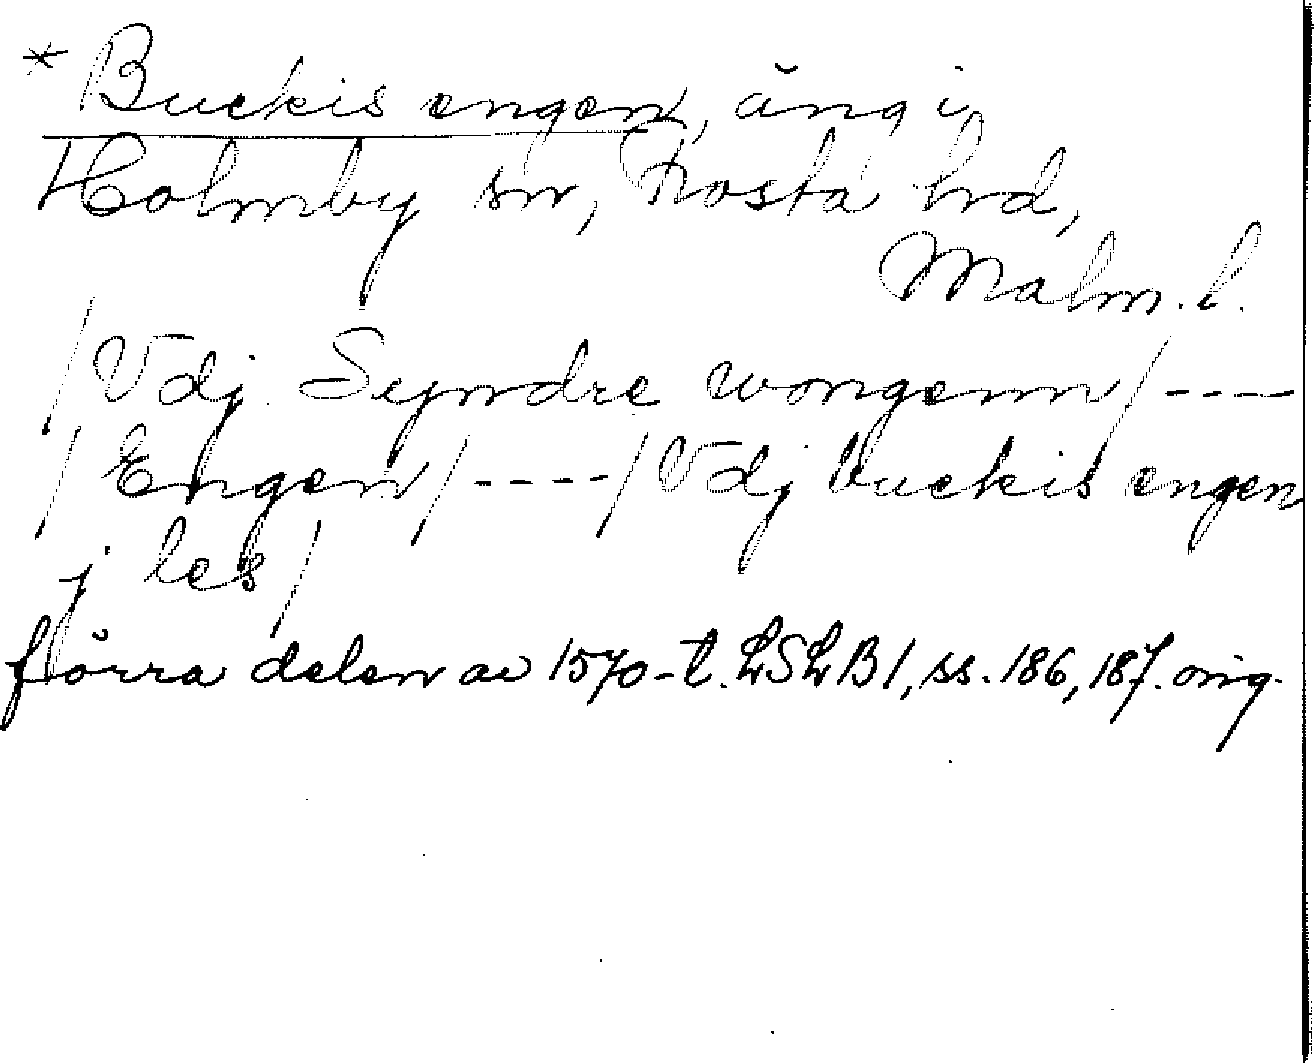 * Buckis engen, äng i
Holmby sn, Frosta hrd,
Malm. l.
/Vdj. Syndre wongenn/ ---
/Engen/ ----/Vdj buckis engen
j les/
förra delen av 1570-t. LSLB1, ss. 186, 187. orig.